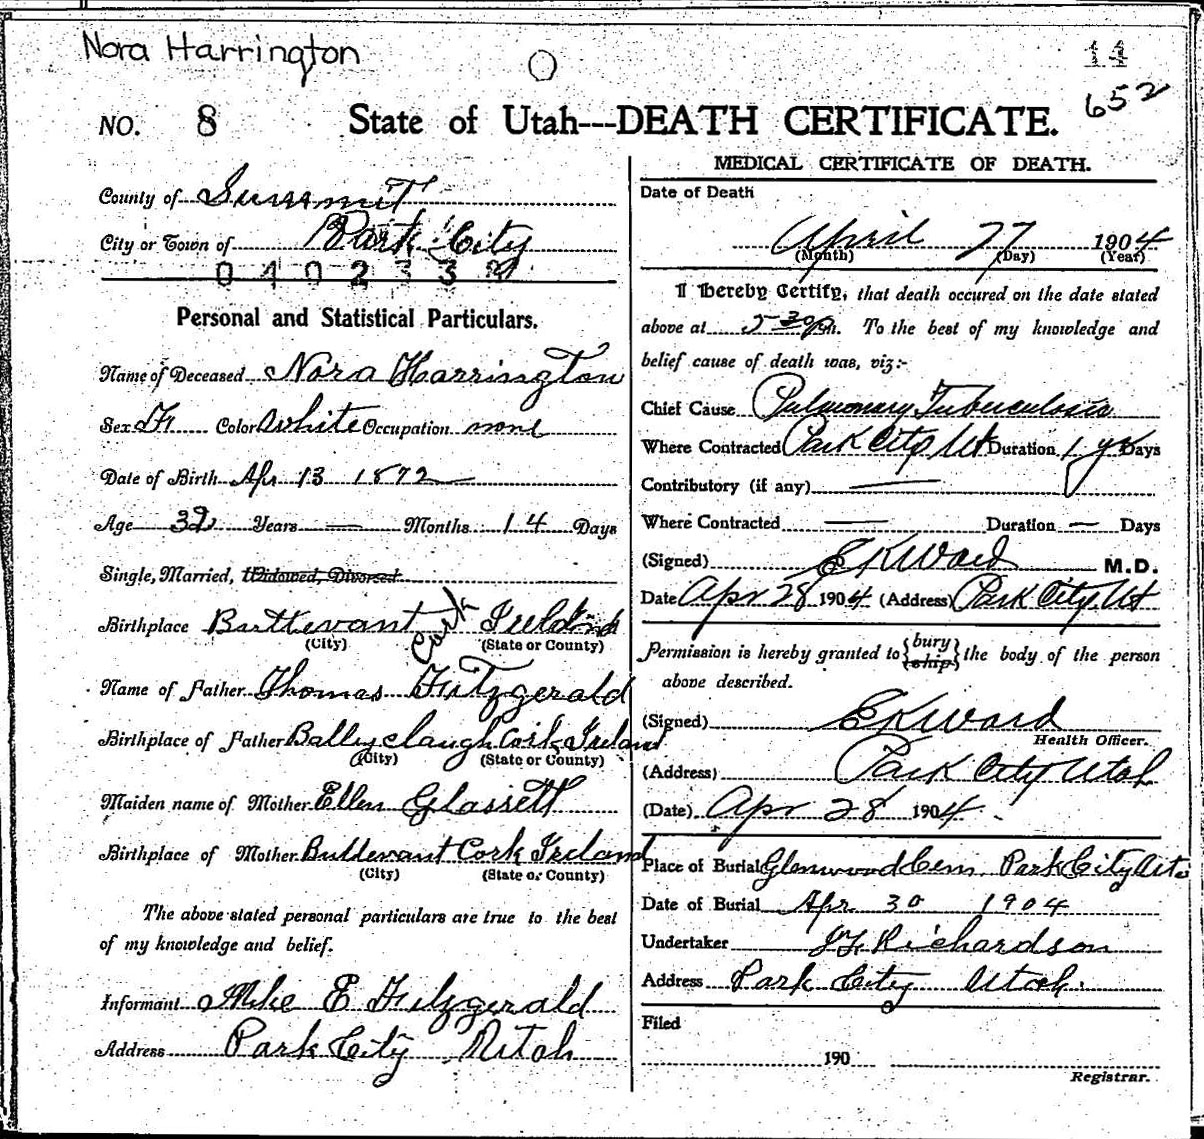 Nora Harrington
14
652
NO. 8 State of Utah---DEATH CERTIFICATE.
County of Summit
City or Town of Park City
Personal and Statistical Particulars.
Name of Deceased Nora Harrington
Sex F Color White Occupation none
Date of Birth Apr 13 1872
Age 32 Years — Months 14 Days
Single, Married, Widowed, Divorsed
Birthplace Buttevant Cork Ireland
(City) (State or County)
Name of Father Thomas Fitzgerald
Birthplace of Father Ballyclaugh Cork Ireland
(City) (State or County)
Maiden name of Mother Ellen Glassett
Birthplace of Mother Buttevant Cork Ireland
(City) (State or County)
The above stated personal particulars are true to the best
of my knowledge and belief.
Informant Mike E Fitzgerald
Address Park City Utah
MEDICAL CERTIFICATE OF DEATH.
Date of Death
April 27 1904
(Month) (Day) (Year)
I hereby Certify, that death occured on the date stated
above at 5 30 pm. To the best of my knowledge and
belief cause of death was, viz:-
Chief Cause Pulmonary Tuberculosis
Where Contracted Park City Ut Duration 1 yr Days
Contributory (if any) —
Where Contracted — Duration — Days
(Signed) EKWard M.D.
Date Apr 28 1904 (Address) Park City Ut
Permission is hereby granted to {bury ship} the body of the person
above described.
(Signed) EKWard
Health Officer.
(Address) Park City Utah
(Date) Apr 28 1904.
Place of Burial Glenwood Cem Park City Utah
Date of Burial Apr 30 1904
Undertaker Richardson
Address Park City Utah.
Filed
190
Registrar.